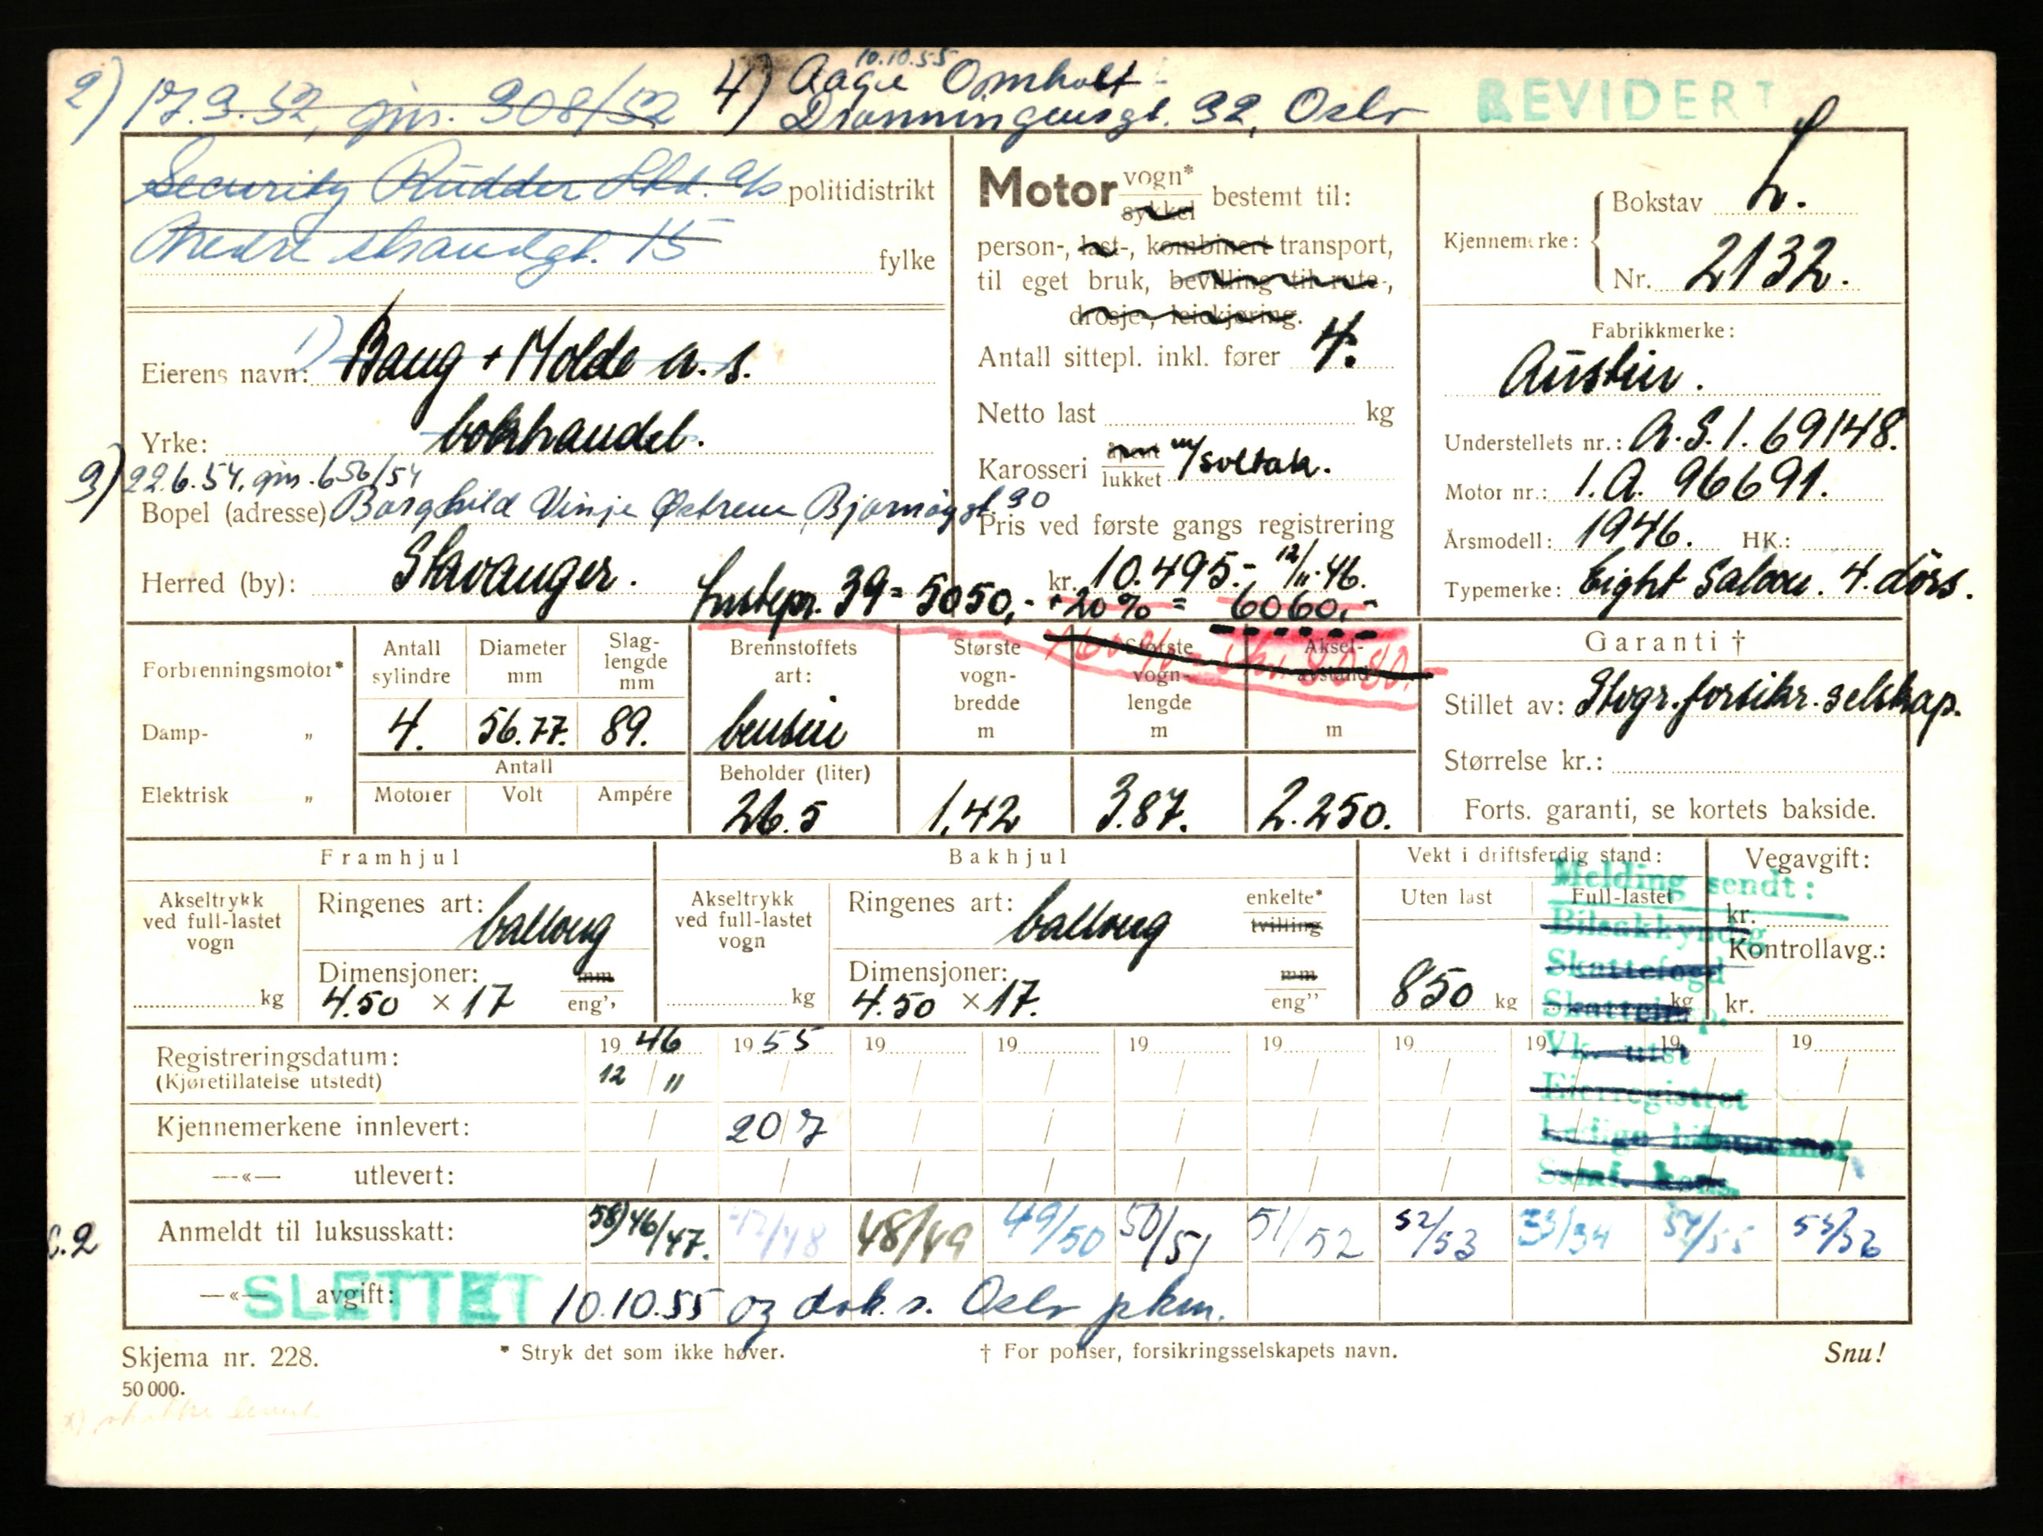 10.10.55
2) 17.3.52, gjn. 308/52 4) Aage Omholt
Dronningensgt. 32, Oslo
REVIDERT
Security Rudder Ltd. a/s politidistrikt
Nedre strandgt. 15 fylke
1)
Eierens navn: Baug + Molde a.s.
Yrke: bokhandel.
3) 22.6.54, gjn. 656/54
Bopel (adresse) Borghild Vinje Østrem Bjørnøygt. 30
Herred (by): Stavanger.
Motor vogn* sykkel bestemt til:
person-, last-, kombinert transport,
til eget bruk, bevilling til rute-,
drosje-, leiekjøring.
Antall sittepl. inkl. fører 4.
Netto last kg
Karosseri åpent lukket m/soltak.
Pris ved første gangs registrering
kr. 10.495.- 12/11.46.
39 = 5050,- + 20% = 6060.-
Kjennemerke: Bokstav L.
Nr. 2132.
Fabrikkmerke:
Austin.
Understellets nr.: A.S.1. 69148.
Motor nr.: 1.A. 96691.
Årsmodell: 1946. HK.:
Typemerke: Eight Saloon. 4. dörs.
Garanti †
Stillet av: Stvgr. forsikr. selskap.
Størrelse kr.:
Forts. garanti, se kortets bakside.
Forbrenningsmotor*
Damp- „
Elektrisk „
Antall sylindre
Diameter mm
Slag-lengde mm
4. 56.77. 89.
Antall
Motorer Volt Ampére
Brennstoffets art:
bensin
Beholder (liter)
26.5
Største vogn-bredde m
1.42
Største vogn-lengde m
3.87.
Aksel-avstand m
2.250.
60% = kr. 8080.-
Framhjul
Akseltrykk ved full-lastet vogn
kg
Ringenes art: ballong
Dimensjoner: mm
4.50 × 17 eng''
Bakhjul
Akseltrykk ved full-lastet vogn
kg
Ringenes art: ballong enkelte* tvilling
Dimensjoner: mm
4.50 × 17. eng''
Vekt i driftsferdig stand:
Uten last Full-lastet
850 kg kg
Vegavgift:
kr.
Kontrollavg.:
kr.
Melding sendt:
Bilsakkyndig
Skattefogd
Vk. utst
Eierregistret
Registreringsdatum: 19 46 19 55 19 19 19 19 19 19 19 19
(Kjøretillatelse utstedt) 12 / 11
Kjennemerkene innlevert: 20/7
—«— utlevert:
c.2 Anmeldt til luksusskatt: 58) 46/47. 47/48 48/49 49/50 50/51 51/52 52/53 53/54 54/55 55/56
—«— avgift:
SLETTET 10.10.55 og dok. s. Oslo pkm.
Skjema nr. 228.
* Stryk det som ikke høver.
† For poliser, forsikringsselskapets navn.
Snu!
50 000.